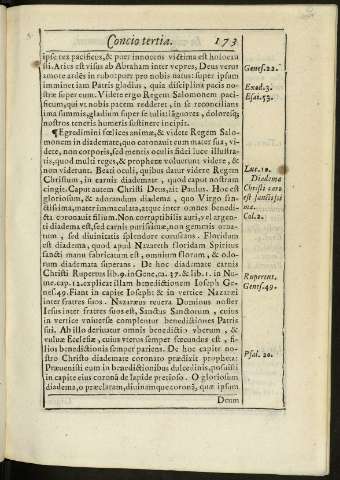 Concio tertia. 173
ipse rex pacificus, & puer innocens victima est holocau
sti. Aries est visus ab Abraham inter vepres, Deus verus
amore ardēs in rubo: puer pro nobis natus: super ipsum
imminet iam Patris gladius, quia disciplina pacis no-
stræ super eum. Videre ergo Regem Salomonem paci-
ficum, qui vt nobis patem redderet, in se reconcilians
ima summis, gladium super se tulit: lāguores, doloresq;
nostros teneris humeris sustinere incipit.
¶Egredimini fœlices animæ, & videte Regem Salo-
monem in diademate, quo coronauit eum mater sua, vi-
dete, non corporis, sed mentis oculis fidei luce illustra-
tis, quod multi reges, & prophetæ voluerunt videre, &
non viderunt. Beati oculi, quibus datur videre Regem
Christum, in carnis diademate, quod caput nostrum
cingit. Caput autem Christi Deus, ait Paulus. Hoc est
gloriosum, & adorandum diadema, quo Virgo san-
ctissima, mater immaculata, atque inter omnes benedi-
cta coronauit filium. Non corruptibilis auri, vel argen-
ti diadema est, sed carnis purissimæ, non gemmis orna-
tum, sed diuinitatis splendore coruscans. Floridum
est diadema, quod apud Nazareth floridam Spiritus
sancti manu fabricatum est, omnium florum, & odo-
rum diademata superans. De hoc diademate carnis
Christi Rupertus lib. 9. in Gene, ca. 37. & lib. 1. in Nu-
me. cap. 12. explicat illam benedictionem Ioseph Ge-
nes. 49. Fiant in capite Ioseph: & in vertice Nazaræi
inter fratres suos. Nazaræus reuera Dominus noster
Iesus inter fratres suos est, Sanctus Sanctorum, cuius
in vertice vniuersæ complentur benedictiones Patris
sui. Ab illo deriuatur omnis benedictio vberum, &
vuluæ Ecclesiæ, cuius vterus semper fœcundus est, fi-
lios benedictionis semper pariens. De hoc capite no-
stro Christo diademate coronato prædixit propheta:
Præuenisti eum in benedictionibus dulcedinis, posuisti
in capite eius coronā de lapide precioso. O gloriosum
diadema, o præclaram, diuinamque coronā, quæ ipsum
Deum
Genes. 22.
Exod. 3.
Esai. 53.
Luc. 10.
Diadema
Christi caro
est sanctissi
ma.
Col. 2.
Rupertus.
Genes. 49.
Psal. 20.